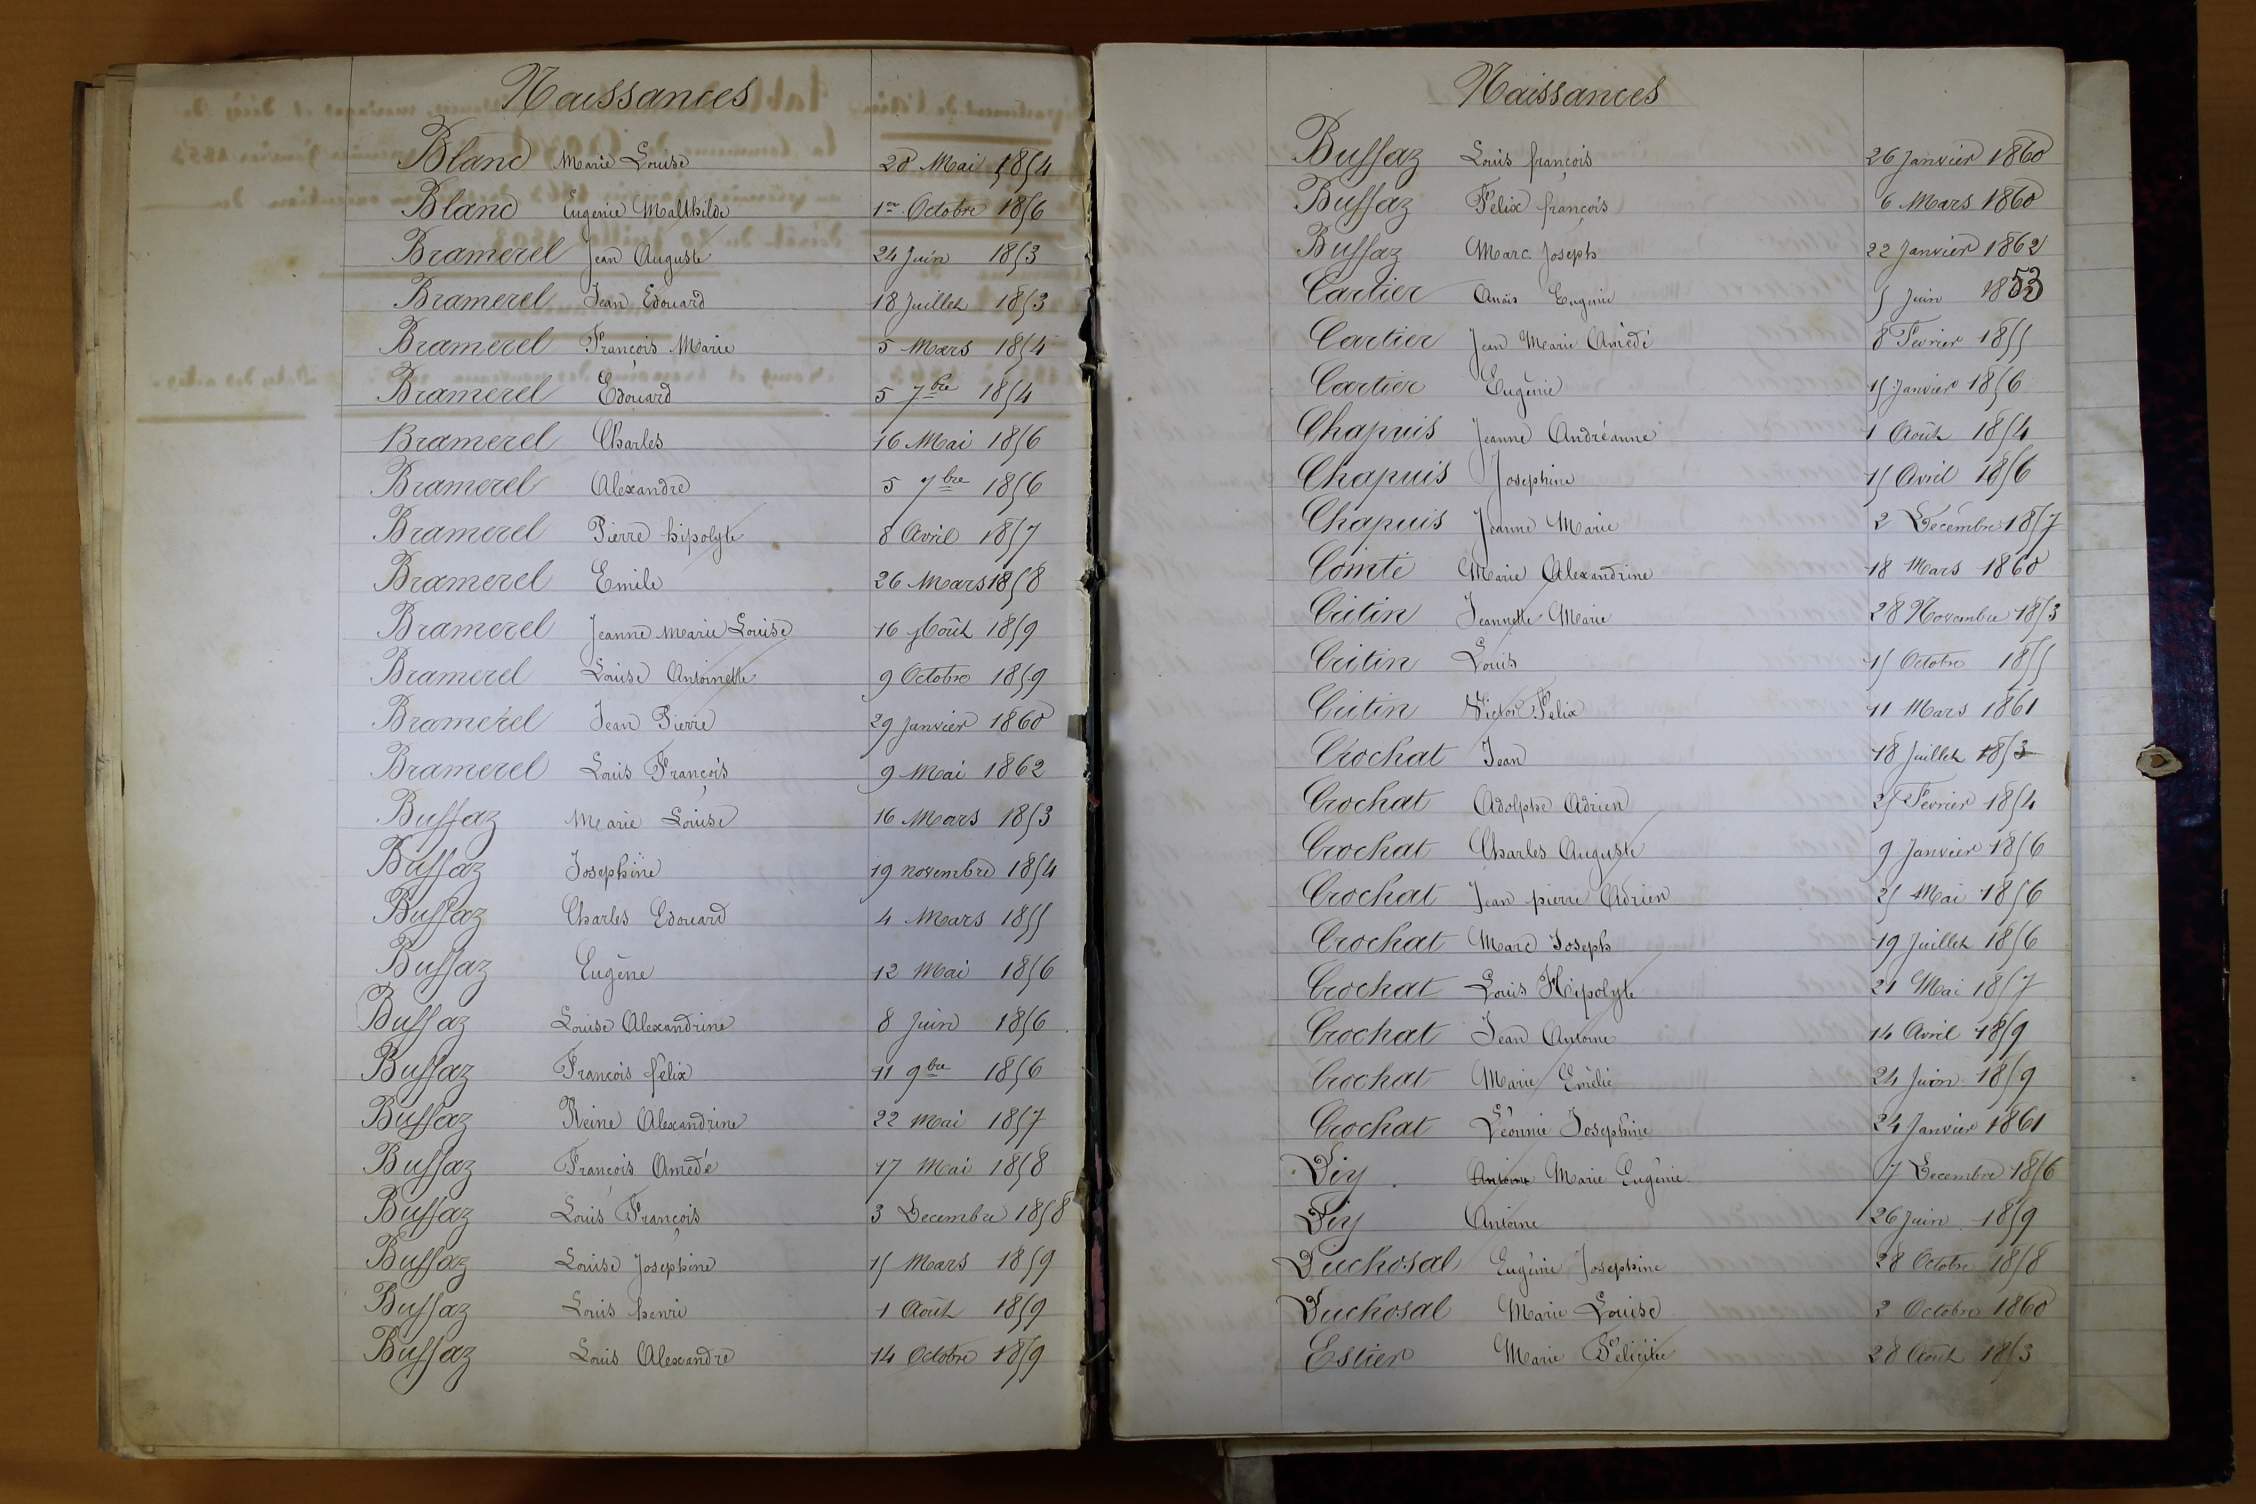 Naissances
Bland Marie Louise 28 Mai 1854
Bland Eugenie Malthilde 1er Octobre 1856
Bramerel Jean Auguste 24 Juin 1853
Bramerel Jean Edouard 18 Juillet 1853
Bramerel François Marie 5 Mars 1854
Bramerel Edouard 5 7bre 1854
Bramerel Charles 16 Mai 1856
Bramerel Alexandre 5 7bre 1856
Bramerel Pierre hipolyte 8 Avril 1857
Bramerel Emile 26 Mars 1858
Bramerel Jeanne Marie Louise 16 Août 1859
Bramerel Louise Antoinette 9 Octobre 1859
Bramerel Jean Pierre 29 Janvier 1860
Bramerel Louis François 9 Mai 1862
Buffaz Marie Louise 16 Mars 1853
Buffaz Josephine 19 novembre 1854
Buffaz Charles Edouard 4 Mars 1855
Buffaz Eugène 12 Mai 1856
Buffaz Louise Alexandrine 8 Juin 1856
Buffaz François félix 11 9bre 1856
Buffaz Reine Alexandrine 22 Mai 1857
Buffaz François Amedé 17 Mai 1858
Buffaz Louis François 3 Decembre 1858
Buffaz Louise Josephine 15 Mars 1859
Buffaz Louis henri 1 Août 1859
Buffaz Louis Alexandre 14 Octobre 1859
Naissances
Buffaz Louis françois 26 Janvier 1860
Buffaz Félix françois 6 Mars 1860
Buffaz Marc Joseph 22 Janvier 1862
Cartier Anaïs Eugenie 5 Juin 1853
Cartier Jean Marie Amédé 8 Fevrier 1855
Cartier Eugénie 15 Janvier 1856
Chapuis Jeanne Andréanne 1 Août 1854
Chapuis Josephine 15 Avril 1856
Chapuis Jeanne Marie 2 Décembre 1857
Comte Marie Alexandrine 18 Mars 1860
Critin Jeannette Marie 28 Novembre 1853
Critin Louis 15 Octobre 1855
Critin Victor Félix 11 Mars 1861
Crochat Jean 18 Juillet 1853
Crochat Adolphe Adrien 25 Fevrier 1854
Crochat Charles Auguste 9 Janvier 1856
Crochat Jean pierre Adrien 25 Mai 1856
Crochat Marc Joseph 19 Juillet 1856
Crochat Louis Hipolyte 21 Mai 1857
Crochat Jean Antoine 14 Avril 1859
Crochat Marie Emélie 24 Juin 1859
Crochat Léonnie Josephine 24 Janvier 1861
Diy Antoine Marie Eugénie 7 Decembre 1856
Diy Antoine 26 Juin 1859
Duchosal Eugénie Josephine 28 Octobre 1858
Duchosal Marie Louise 2 Octobre 1860
Estier Marie Félicité 28 Août 1853